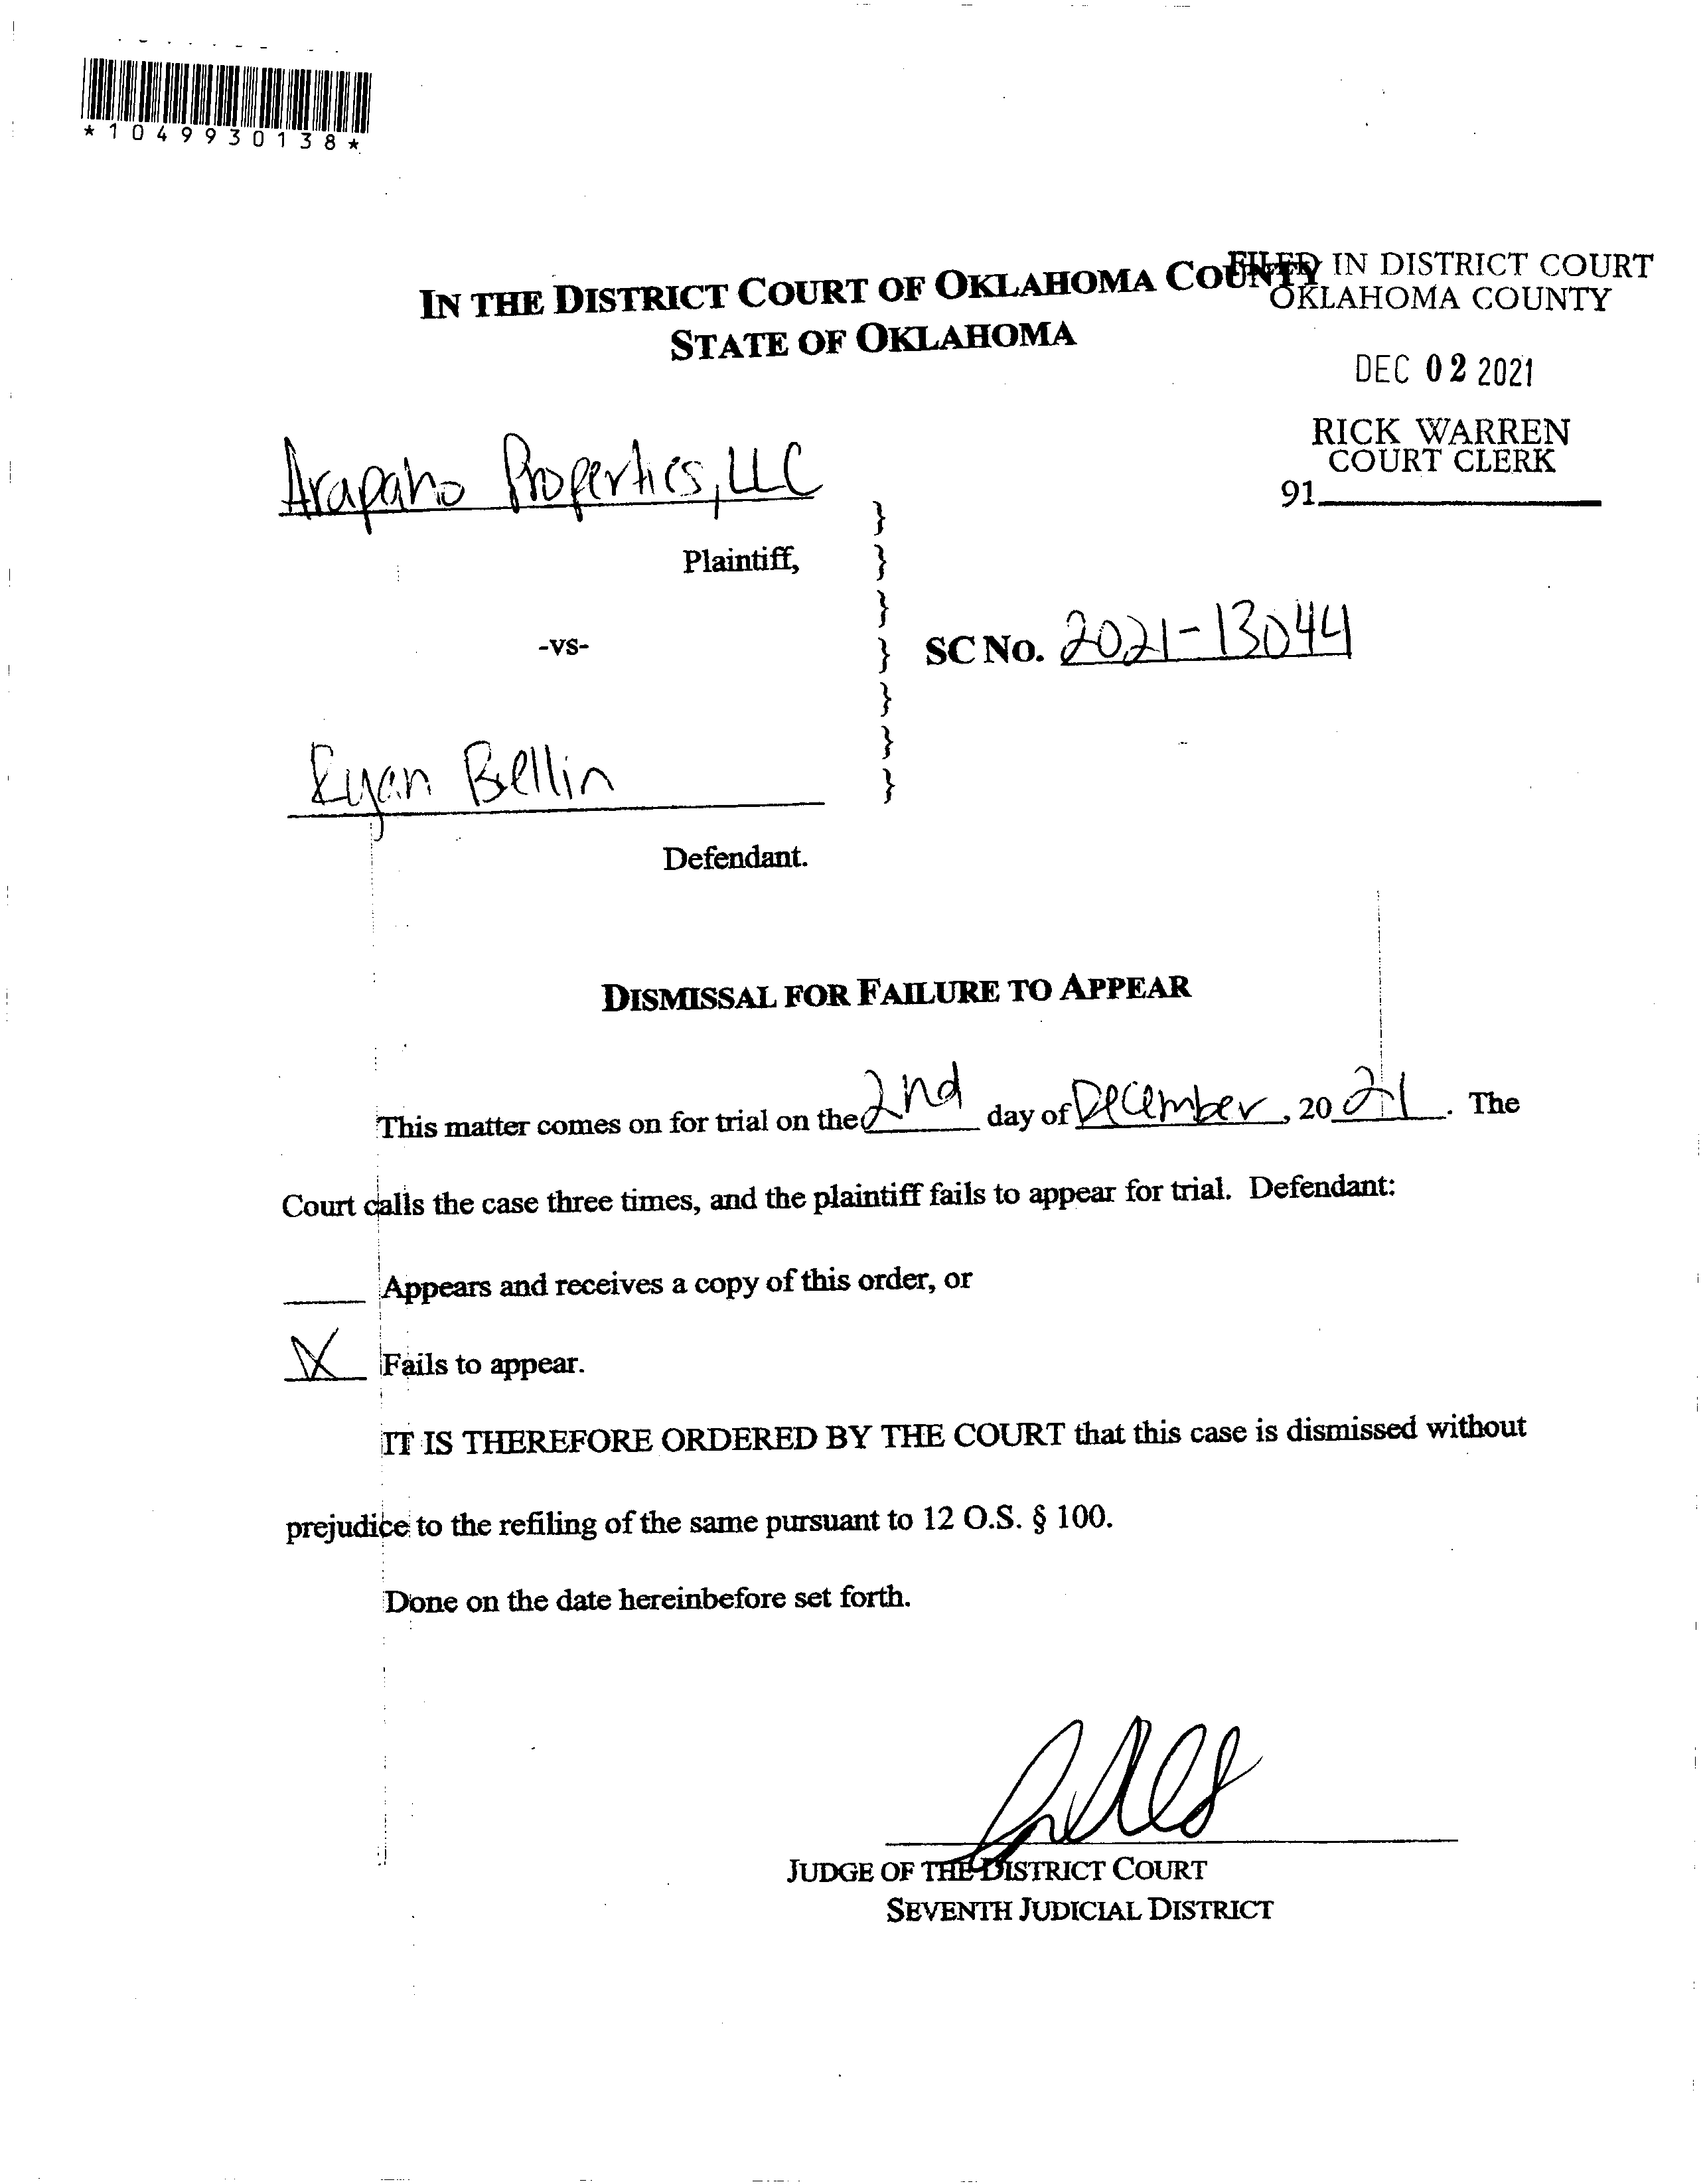 *1049930138*
IN THE DISTRICT COURT OF OKLAHOMA COUNTY
STATE OF OKLAHOMA
FILED IN DISTRICT COURT
OKLAHOMA COUNTY
DEC 02 2021
RICK WARREN
COURT CLERK
91
Arapaho Properties, LLC
Plaintiff,
-vs-
SC NO. 2021-13044
Ryan Bellin
Defendant.
DISMISSAL FOR FAILURE TO APPEAR
This matter comes on for trial on the 2nd day of December, 2021. The
Court calls the case three times, and the plaintiff fails to appear for trial. Defendant:
Appears and receives a copy of this order, or
X Fails to appear.
IT IS THEREFORE ORDERED BY THE COURT that this case is dismissed without
prejudice to the refiling of the same pursuant to 12 O.S. § 100.
Done on the date hereinbefore set forth.
JUDGE OF THE DISTRICT COURT
SEVENTH JUDICIAL DISTRICT